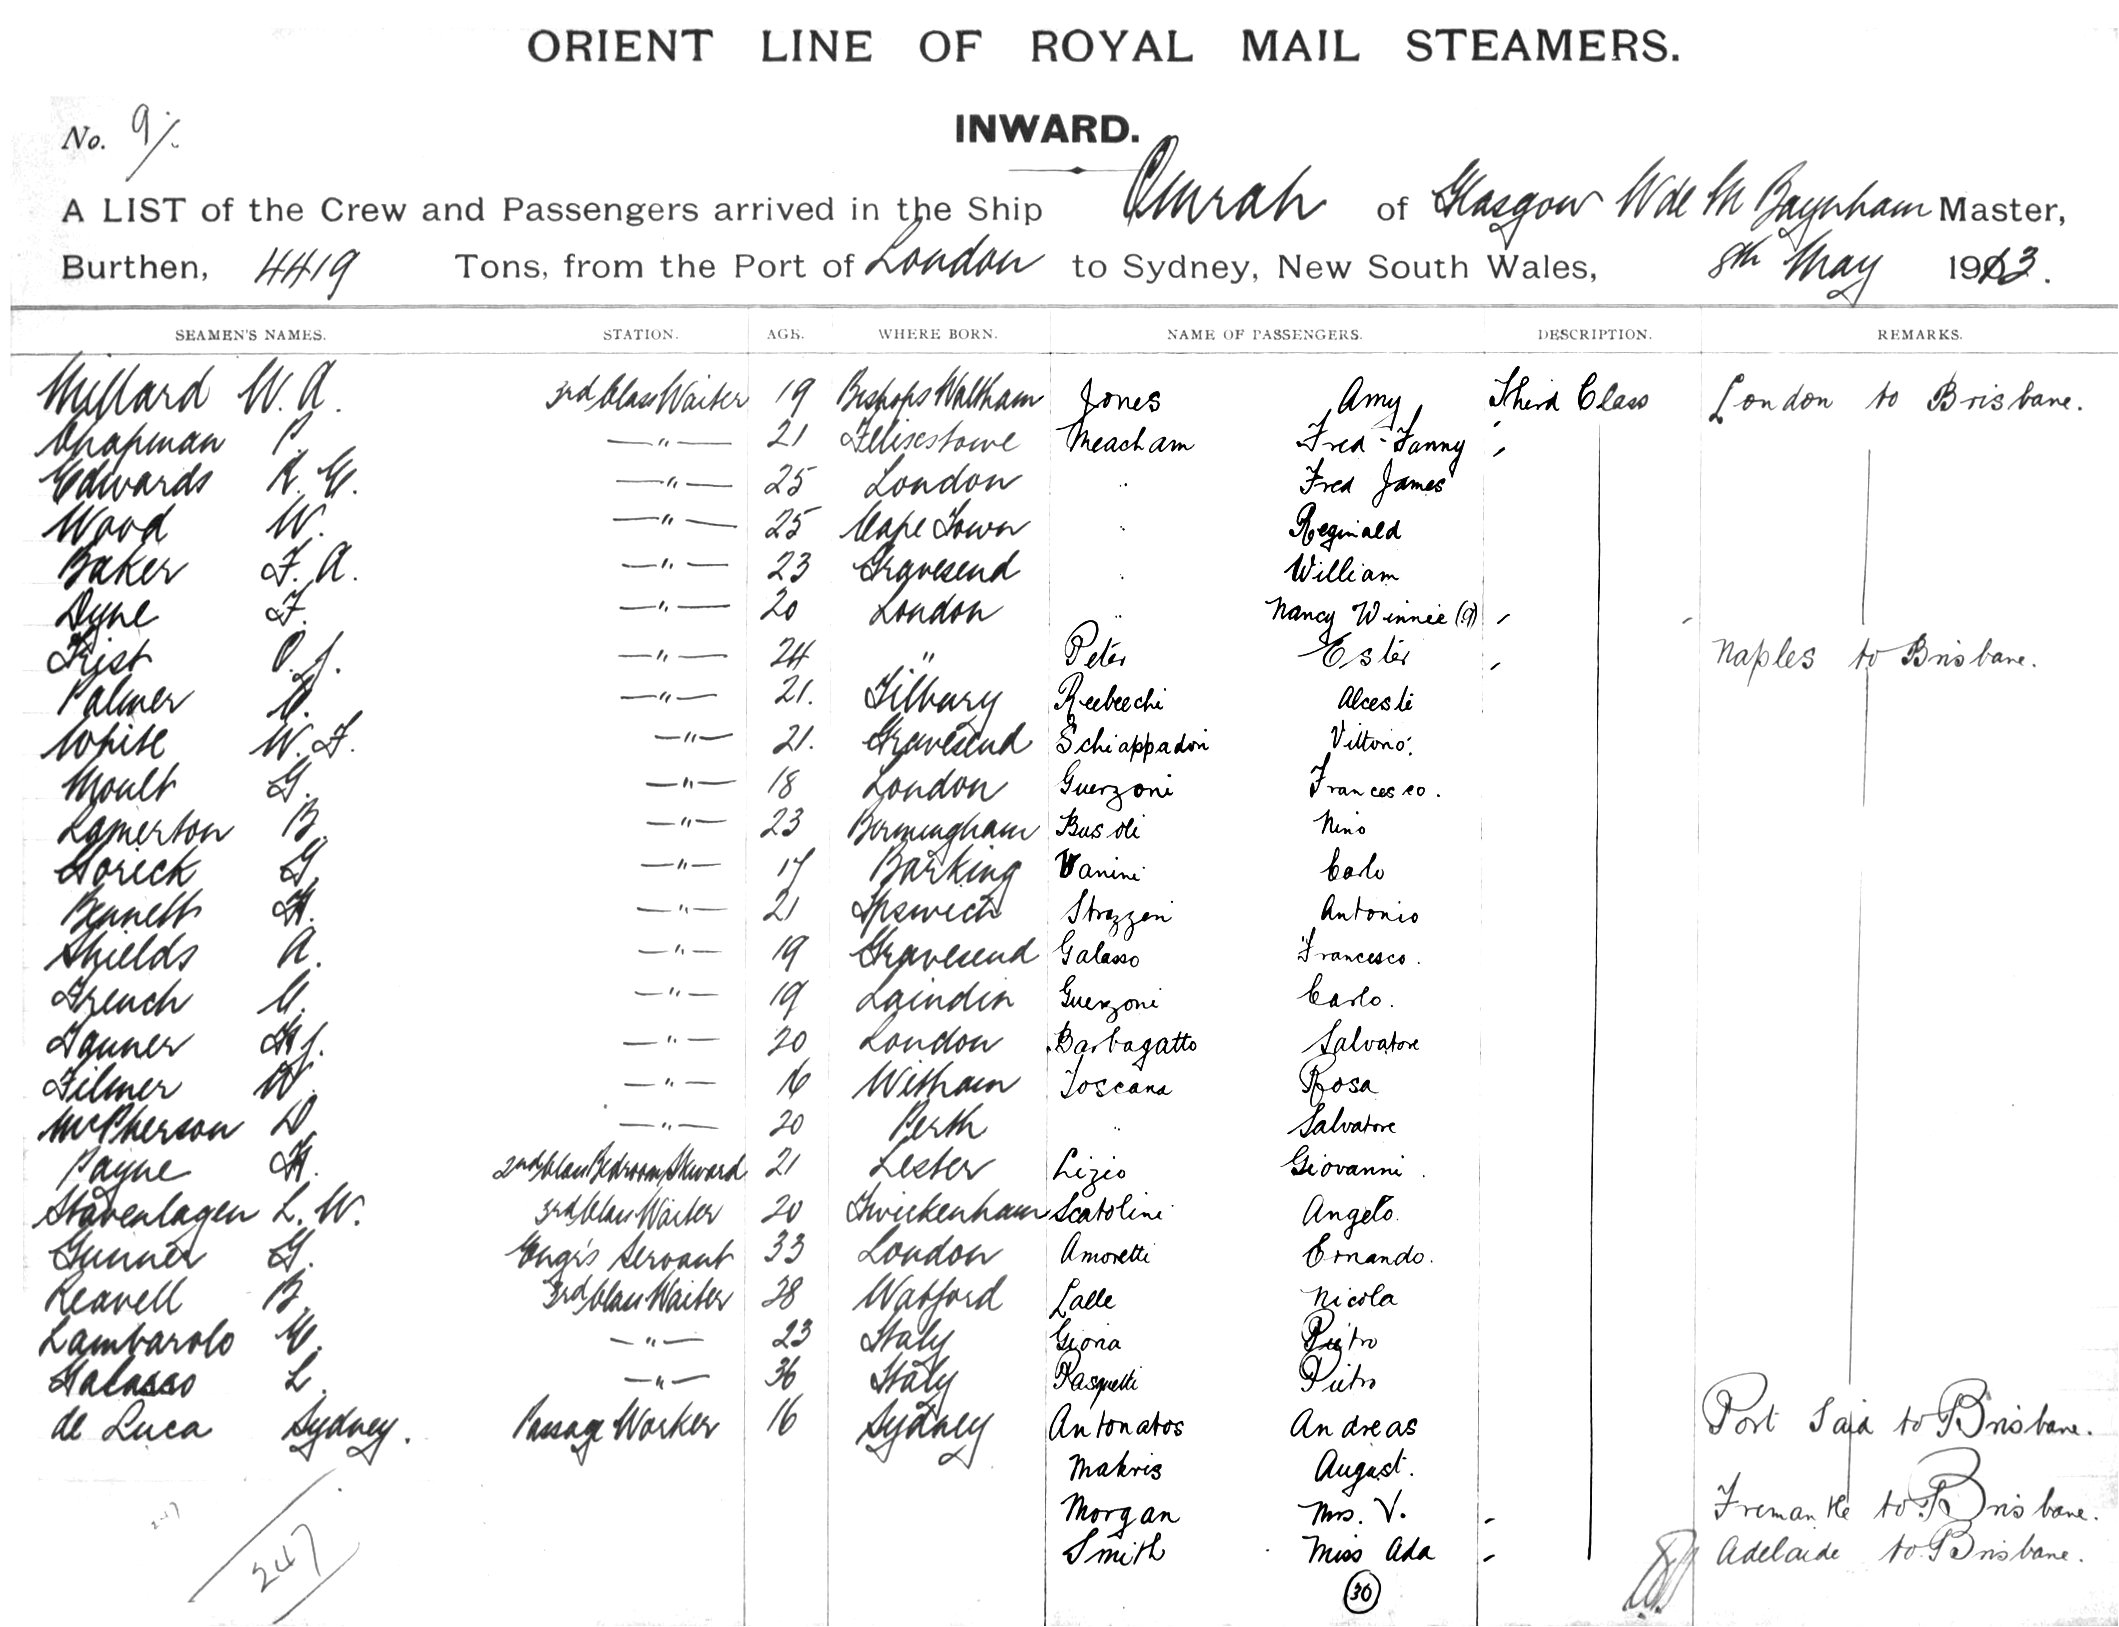 ORIENT LINE OF ROYAL MAIL STEAMERS.
No. 9/.
INWARD.
A LIST of the Crew and Passengers arrived in the Ship Omrah of Glasgow W de M Baynham Master,
Burthen, 4419 Tons, from the Port of London to Sydney, New South Wales, 8th May 1913.
SEAMEN'S NAMES. STATION. AGE. WHERE BORN. NAME OF PASSENGERS. DESCRIPTION. REMARKS.
Millard W. A. 3rd Class Waiter 19 Bishops Waltham Jones Amy Third Class London to Brisbane.
Chapman P. —"— 21 Felixstowe Meacham Fred - Fanny "
Edwards R. E. —"— 25 London " Fred James
Wood W. —"— 25 Cape Town " Reginald
Baker F. A. —"— 23 Gravesend " William
Dyne F. —"— 20 London " Nancy Winnie (9) "
Frist P. J. —"— 24 " Peter Ester " Naples to Brisbane.
Palmer C. —"— 21. Tilbury Reebeechi Alcesti
White W. F. —"— 21. Gravesend Schiappadori Vittorio.
Moult G. —"— 18 London Guerzoni Francesco.
Lamerton B. —"— 23 Birmingham Busoli Nino
Goreck G. —"— 17 Barking Vanini Carlo
Bennett H. —"— 21 Ipswich Strazzeri Antonio
Shields A. —"— 19 Gravesend Galasso Francesco.
French C. —"— 19 Laindin Guerzoni Carlo.
Tanner H J. —"— 20 London Barbagatto Salvatore
Filmer W. —"— 16 Witham Toscana Rosa
McPherson D —"— 20 Perth " Salvatore
Payne H. 2nd Class Bedroom Steward 21 Lester Lizio Giovanni.
Stavenlagen L. W. 3rd Class Waiter 20 Twickenham Scatolini Angelo.
Gunner G. Engr's Servant 33 London Amoretti Ernando.
Reavell B. 3rd Class Waiter 38 Watford Lalle Nicola
Lambarolo E. —"— 23 Italy Gioria Pietro
Galasso L. —"— 36 Italy Pasquetti Pietro
de Luca Sydney. Passage Worker 16 Sydney Antonatos Andreas Port Said to Brisbane.
Makris August.
Morgan Mrs. V. " Fremantle to Brisbane.
Smith Miss Ada " Adelaide to Brisbane.
247
247
30